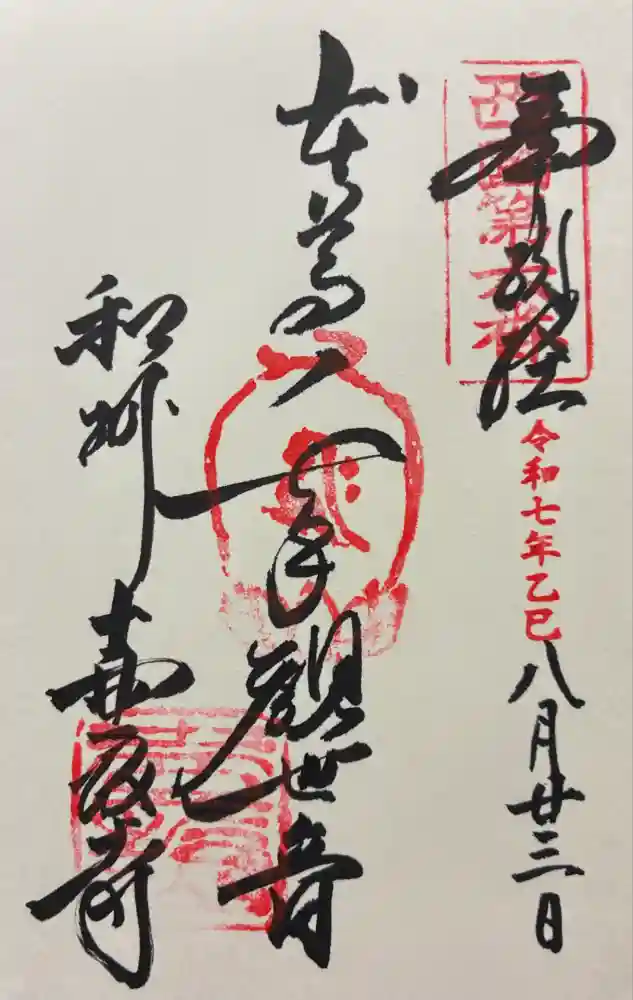 奉納経
西國第六番
令和七年乙巳
八月廿三日
本尊千手観世音
和州
壷阪寺